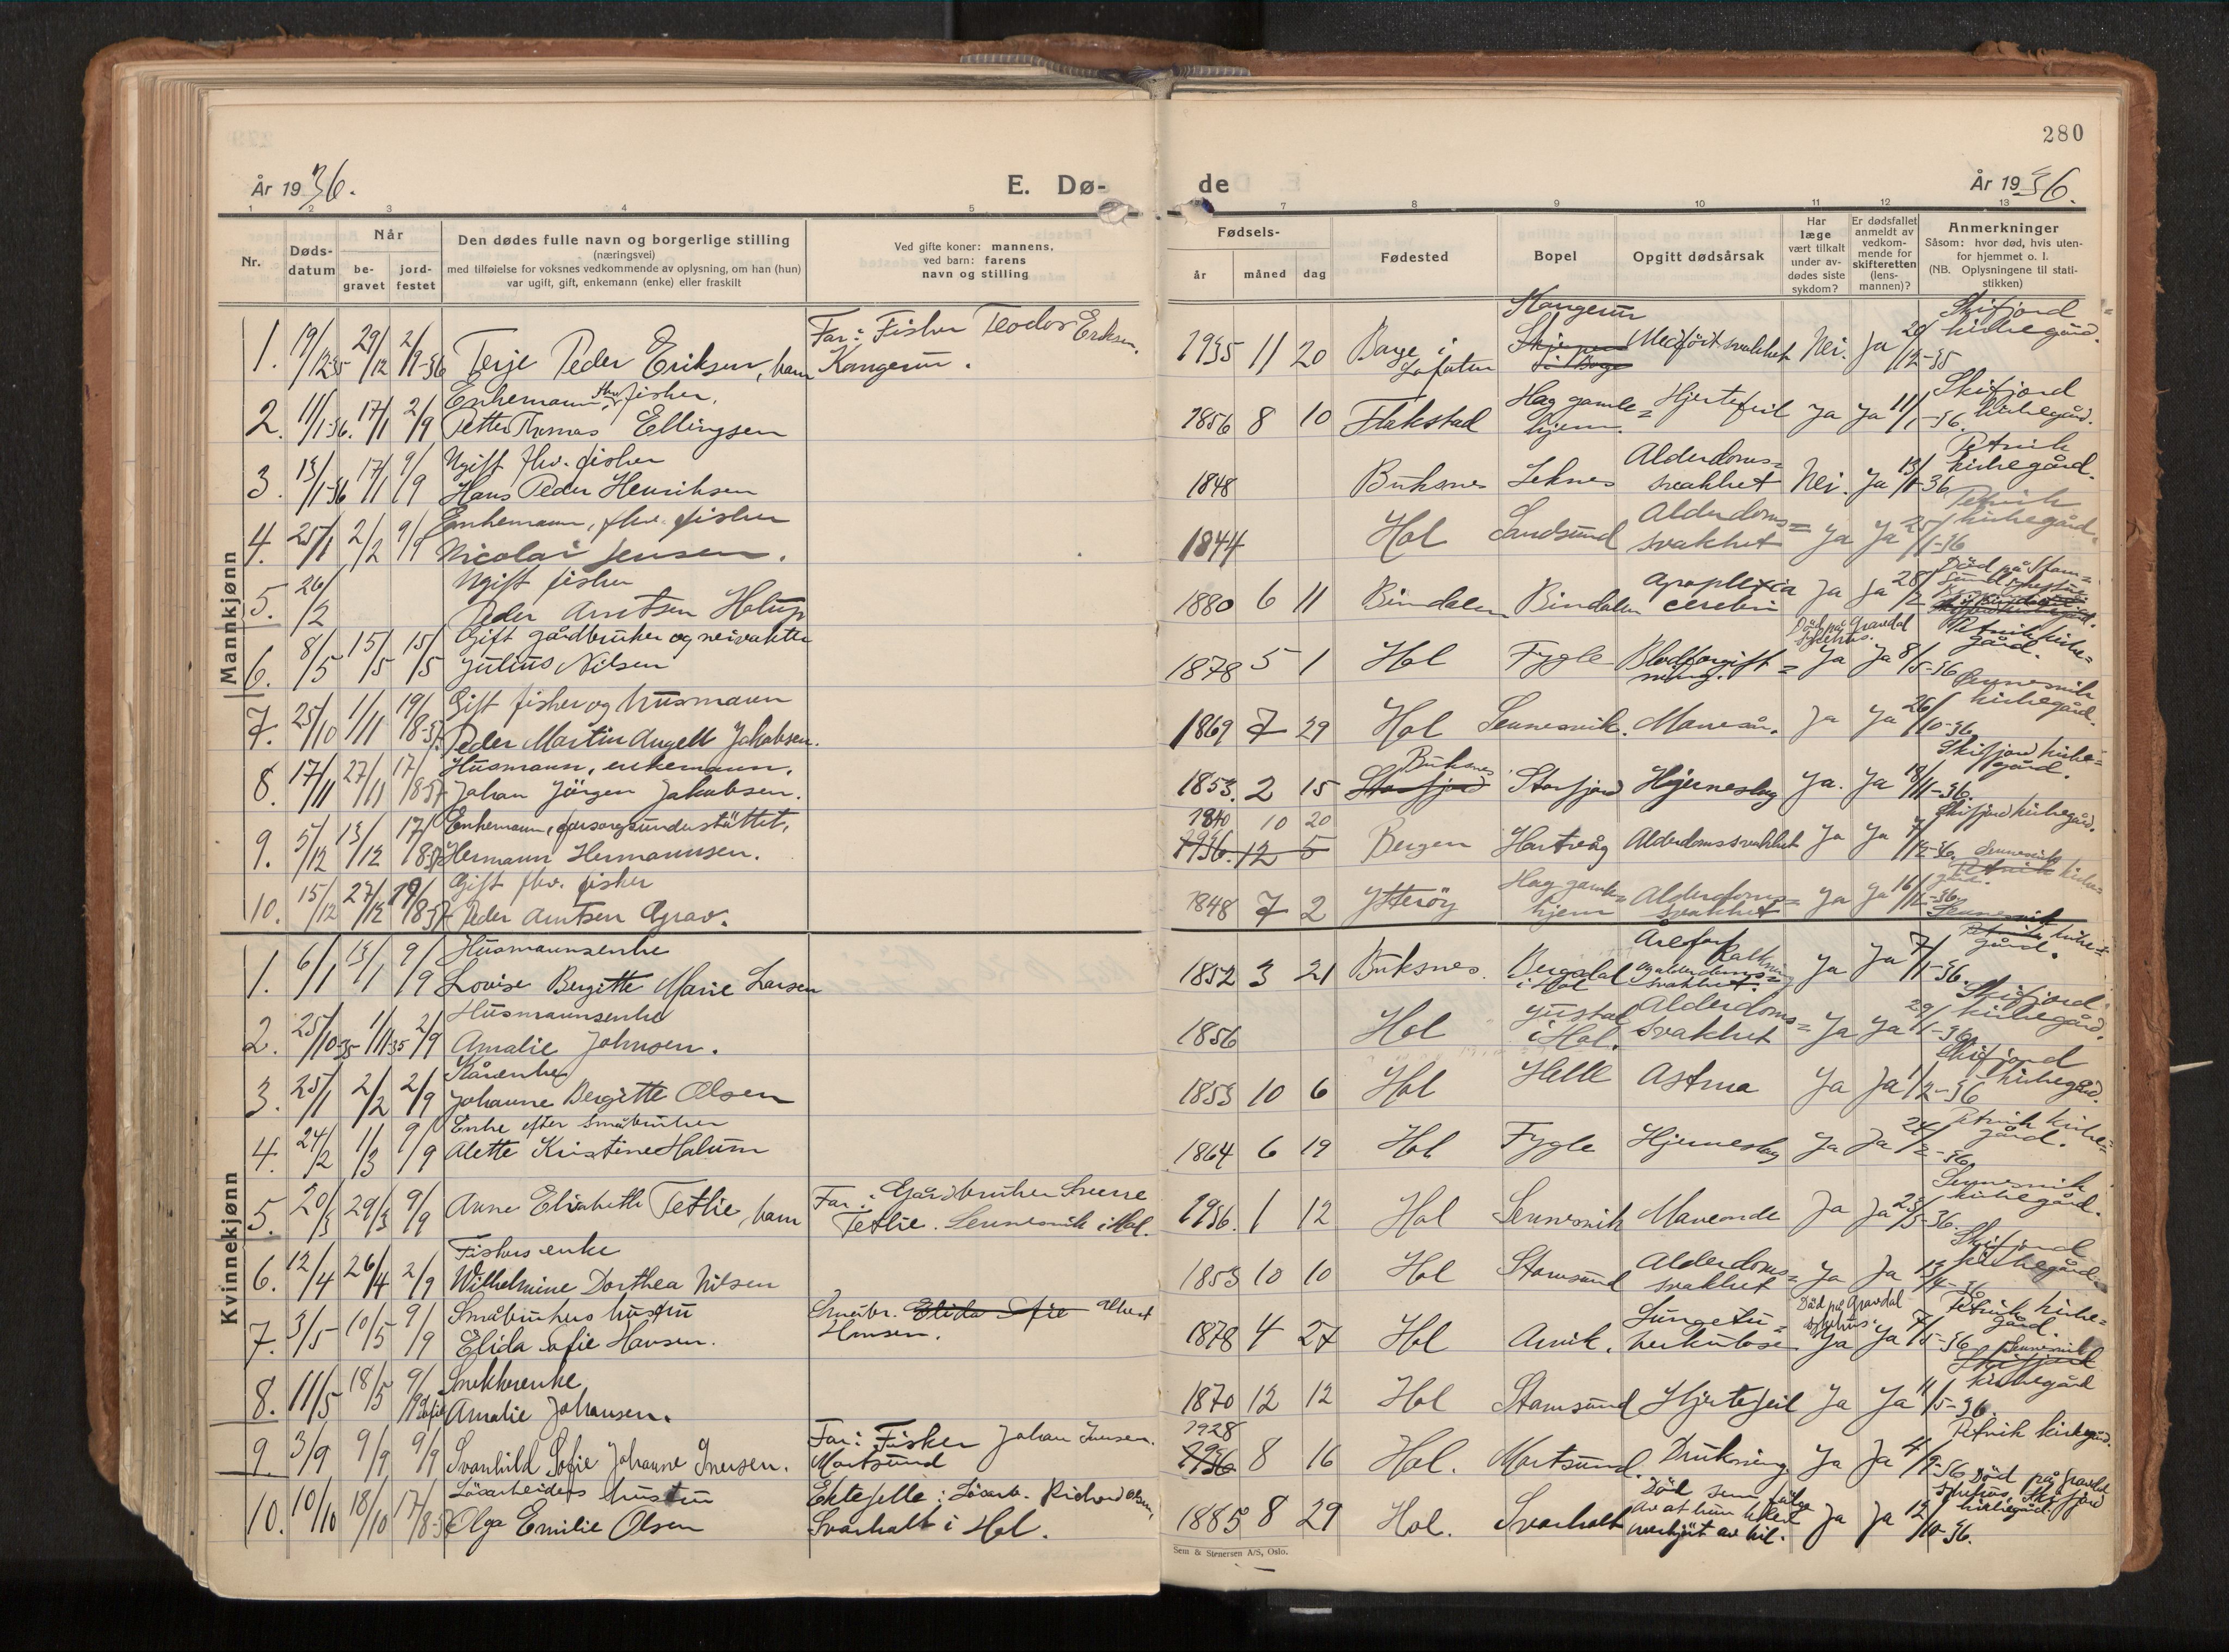 280
År 1936.
E. Dø-
de
År 1936.
1 2 3 4 5
7 8 9 10 11 12 13
Nr.
Døds-
datum
Når
be-
gravet
jord-
festet
Den dødes fulle navn og borgerlige stilling
(næringsvei)
med tilføielse for voksnes vedkommende av oplysning, om han (hun)
var ugift, gift, enkemann (enke) eller fraskilt
Ved gifte koner: mannens,
ved barn: farens
navn og stilling
Fødsels-
år
måned
dag
Fødested
Bopel
Opgitt dødsårsak
Har
læge
vært tilkalt
under av-
dødes siste
sykdom?
Er dødsfallet
anmeldt av
vedkom-
mende for
skifteretten
(lens-
mannen)?
Anmerkninger
Såsom: hvor død, hvis uten-
for hjemmet o. l.
(NB. Oplysningene til stati-
stikken)
Mannkjønn
Far: Fisker Teodor Eriksen,
1. 19/12 35 29/12 2/9-36 Terje Peder Eriksen, barn Kangerur.
Kangerur
1935 11 20 Borge i Lofoten Medfört svakhet Nei. Ja 20/12-35
Skifjord kirkegård.
Enkemann, fhv. fisker.
2. 11/1-36. 17/1 2/9 Petter Thomas Ellingsen
1856 8 10 Flakstad Hag gamle=hjem. Hjertefeil Ja Ja 11/1-36.
Skifjord kirkegård.
Ugift fhv. fisker
3. 13/1-36 17/1 9/9 Hans Peder Henriksen
1848 Buksnes Leknes Alderdoms=svakhet Nei. Ja 13/1-36
Petvik kirkegård.
Enkemann, fhv. fisker
4. 25/1 2/2 9/9 Nicolai Jensen.
1844 Hol Sandsund Alderdoms=svakhet Ja Ja 25/1-36
Petvik kirkegård.
Ugift fisker
5. 26/2 Peder Arntsen Holup
1880 6 11 Bindalen Bindalen Apoplexia cerebri Ja Ja 28/2
Död på Stam=sund
Gift gårdbruker og veivokter
6. 8/5 15/5 15/5 Julius Nilsen
1878 5 1 Hol Fygle Blodforgift=ning. Ja Ja 8/5-36
Död på Gravdal sykehus.
Petvik kirke=gård.
Gift fisker og husmann
7. 25/10 1/11 19/8-37. Peder Martin Angell Jakobsen.
1869 7 29 Hol Sennesvik. Mavesår. Ja Ja 26/10-36
Sennesvik kirkegård.
Husmann, enkemann.
8. 17/11 27/11 17/8-37 Johan Jörgen Jakobsen.
Buksnes
1853. 2 15 Storfjord Storfjord Hjerneslag Ja. Ja 18/11-36.
Skifjord kirke=gård.
Enkemann, forsorgsunderstöttet,
9. 5/12 13/12 17/8-37 Hermann Hermannsen.
1840 10 20
1936. 12 5 Bergen Hartvåg Alderdomssvakhet Ja Ja 7/12-36.
Skifjord kirkegård.
Gift fhv. fisker
10. 15/12 27/12 19/8-37 Peder Arntsen Grav.
1848 7 2 Ytteröy Hag gamle=hjem Alderdoms=svakhet Ja Ja 16/12-36
Sennesvik Petvik kirke=gård.
Kvinnekjønn
Husmannsenke
1. 6/1 13/1 9/9 Lovise Bergitte Marie Larsen
1852 3 21 Buksnes. Bergsdal i Hol Åreforkalkning og alderdoms=svakhet. Ja Ja 7/1-36.
Sennesvik Petvik kirke=gård.
Husmannsenke
2. 25/10-35 1/11 35 2/9 Amalie Johnsen.
1856 Hol Justad i Hol. Alderdoms=svakhet Ja Ja 29/1-36
Skifjord kirkegård.
Kårenke
3. 25/1 2/2 2/9 Johanne Bergitte Olsen
1853 10 6 Hol Helle Astma Ja Ja 1/2-36
Skifjord kirkegård.
Enke efter småbruker
4. 24/2 1/3 9/9 Alette Kristine Halum
1864 6 19 Hol Fygle Hjerneslag Ja Ja 24/2-36
Petvik kirke=gård.
5. 20/3 29/3 9/9 Anne Elisabeth Tetlie, barn
Far: Gårdbruker Sverre Tetlie. Sennesvik i Hol.
1936. 1 12 Hol Sennesvik Maveonde Ja Ja 23/3-36.
Sennesvik kirkegård.
Fiskers enke
6. 12/4 26/4 2/9 Wilhelmine Dorthea Nilsen
1853 10 10 Hol Stamsund Alderdoms=svakhet Ja Ja 13/4-36
Skifjord kirkegård.
Småbrukers hustru
7. 3/5 10/5 9/9 Elida Sofie Hansen.
Småbr. Elida Sofie Albert Hansen.
1878 4 27 Hol Arvik. Lungetu=berkulose Ja Ja 7/5-36
Död på Gravdal sykehus.
Petvik kirke=gård.
Snekkerenke
8. 11/5 18/5 9/9 Amalie Sofie Johansen.
1870 12 12 Hol Stamsund Hjertefeil Ja Ja 11/5-36.
Sennesvik Skifjord kirkegård
9. 3/9 9/9 9/9 Svanhild Sofie Johanne Iversen.
Far: Fisker Johan Iversen. Mortsund
1928
1936 8 16 Hol. Mortsund. Drukning Ja Ja 4/9-36
Petvik kirkegård.
Lösarbeiders hustru
10. 10/10 18/10 17/8-37 Olga Emilie Olsen
Ektefelle: Lösarb. Richard Olsen, Svarholt i Hol.
1885 8 29 Hol. Svarholt Död som fölge av at hun blev overkjört av bil. Ja Ja 12/10-36.
Död på Gravdal sykehus, Skifjord kirkegård.
Sem & Stenersen A/S, Oslo.